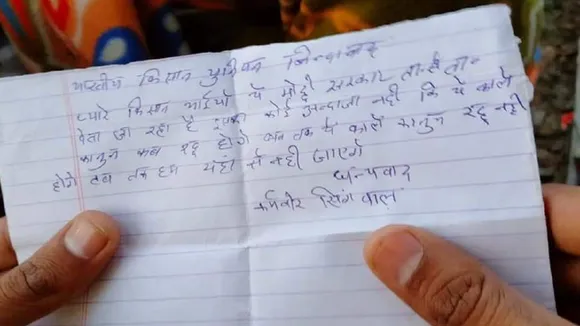 भारतीय किसान युनियन जिन्दाबाद
प्यारे किसान भाईयों ये मोदी सरकार तारीख पे तारीख
देता जा रहा है इसका कोई अन्दाजा नही कि ये काले
कानुन कब रद्द होगें जब तक ये काले कानुन रद्द नही
होगें तब तक हम यहां से नही जाएगें
धन्यवाद
कर्मवीर सिंगवाल